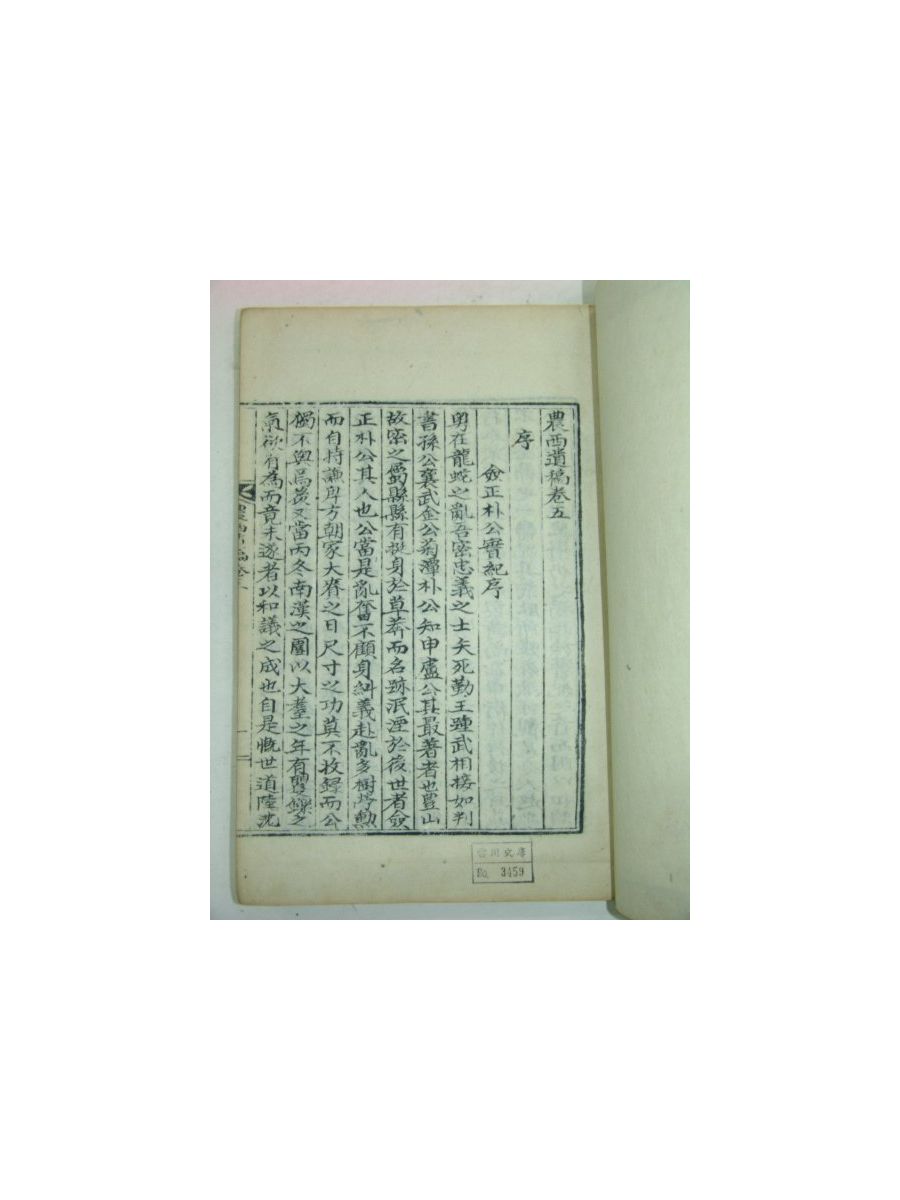 農西遺稿卷五
序
僉正朴公實紀序
粤在龍蛇之亂吾密忠義之士矢死勤王踵武相接如判
書孫公襄武金公菊潭朴公知申盧公其最著者也豈山
故密之屬縣縣有挺身於草莽而名跡泯湮於後世者僉
正朴公其人也公當是亂奮不顧身糾義赴亂多樹勞勲
而自持謙卑方朝家大賚之日尺寸之功莫不枚錄而公
獨不與焉及又當丙冬南漢之圍以大耋之年有矍鑠之
氣欲有為而竟未遂者以和議之成也自是慨世道陸沈
農西遺稿卷五
文庫
No. 3459